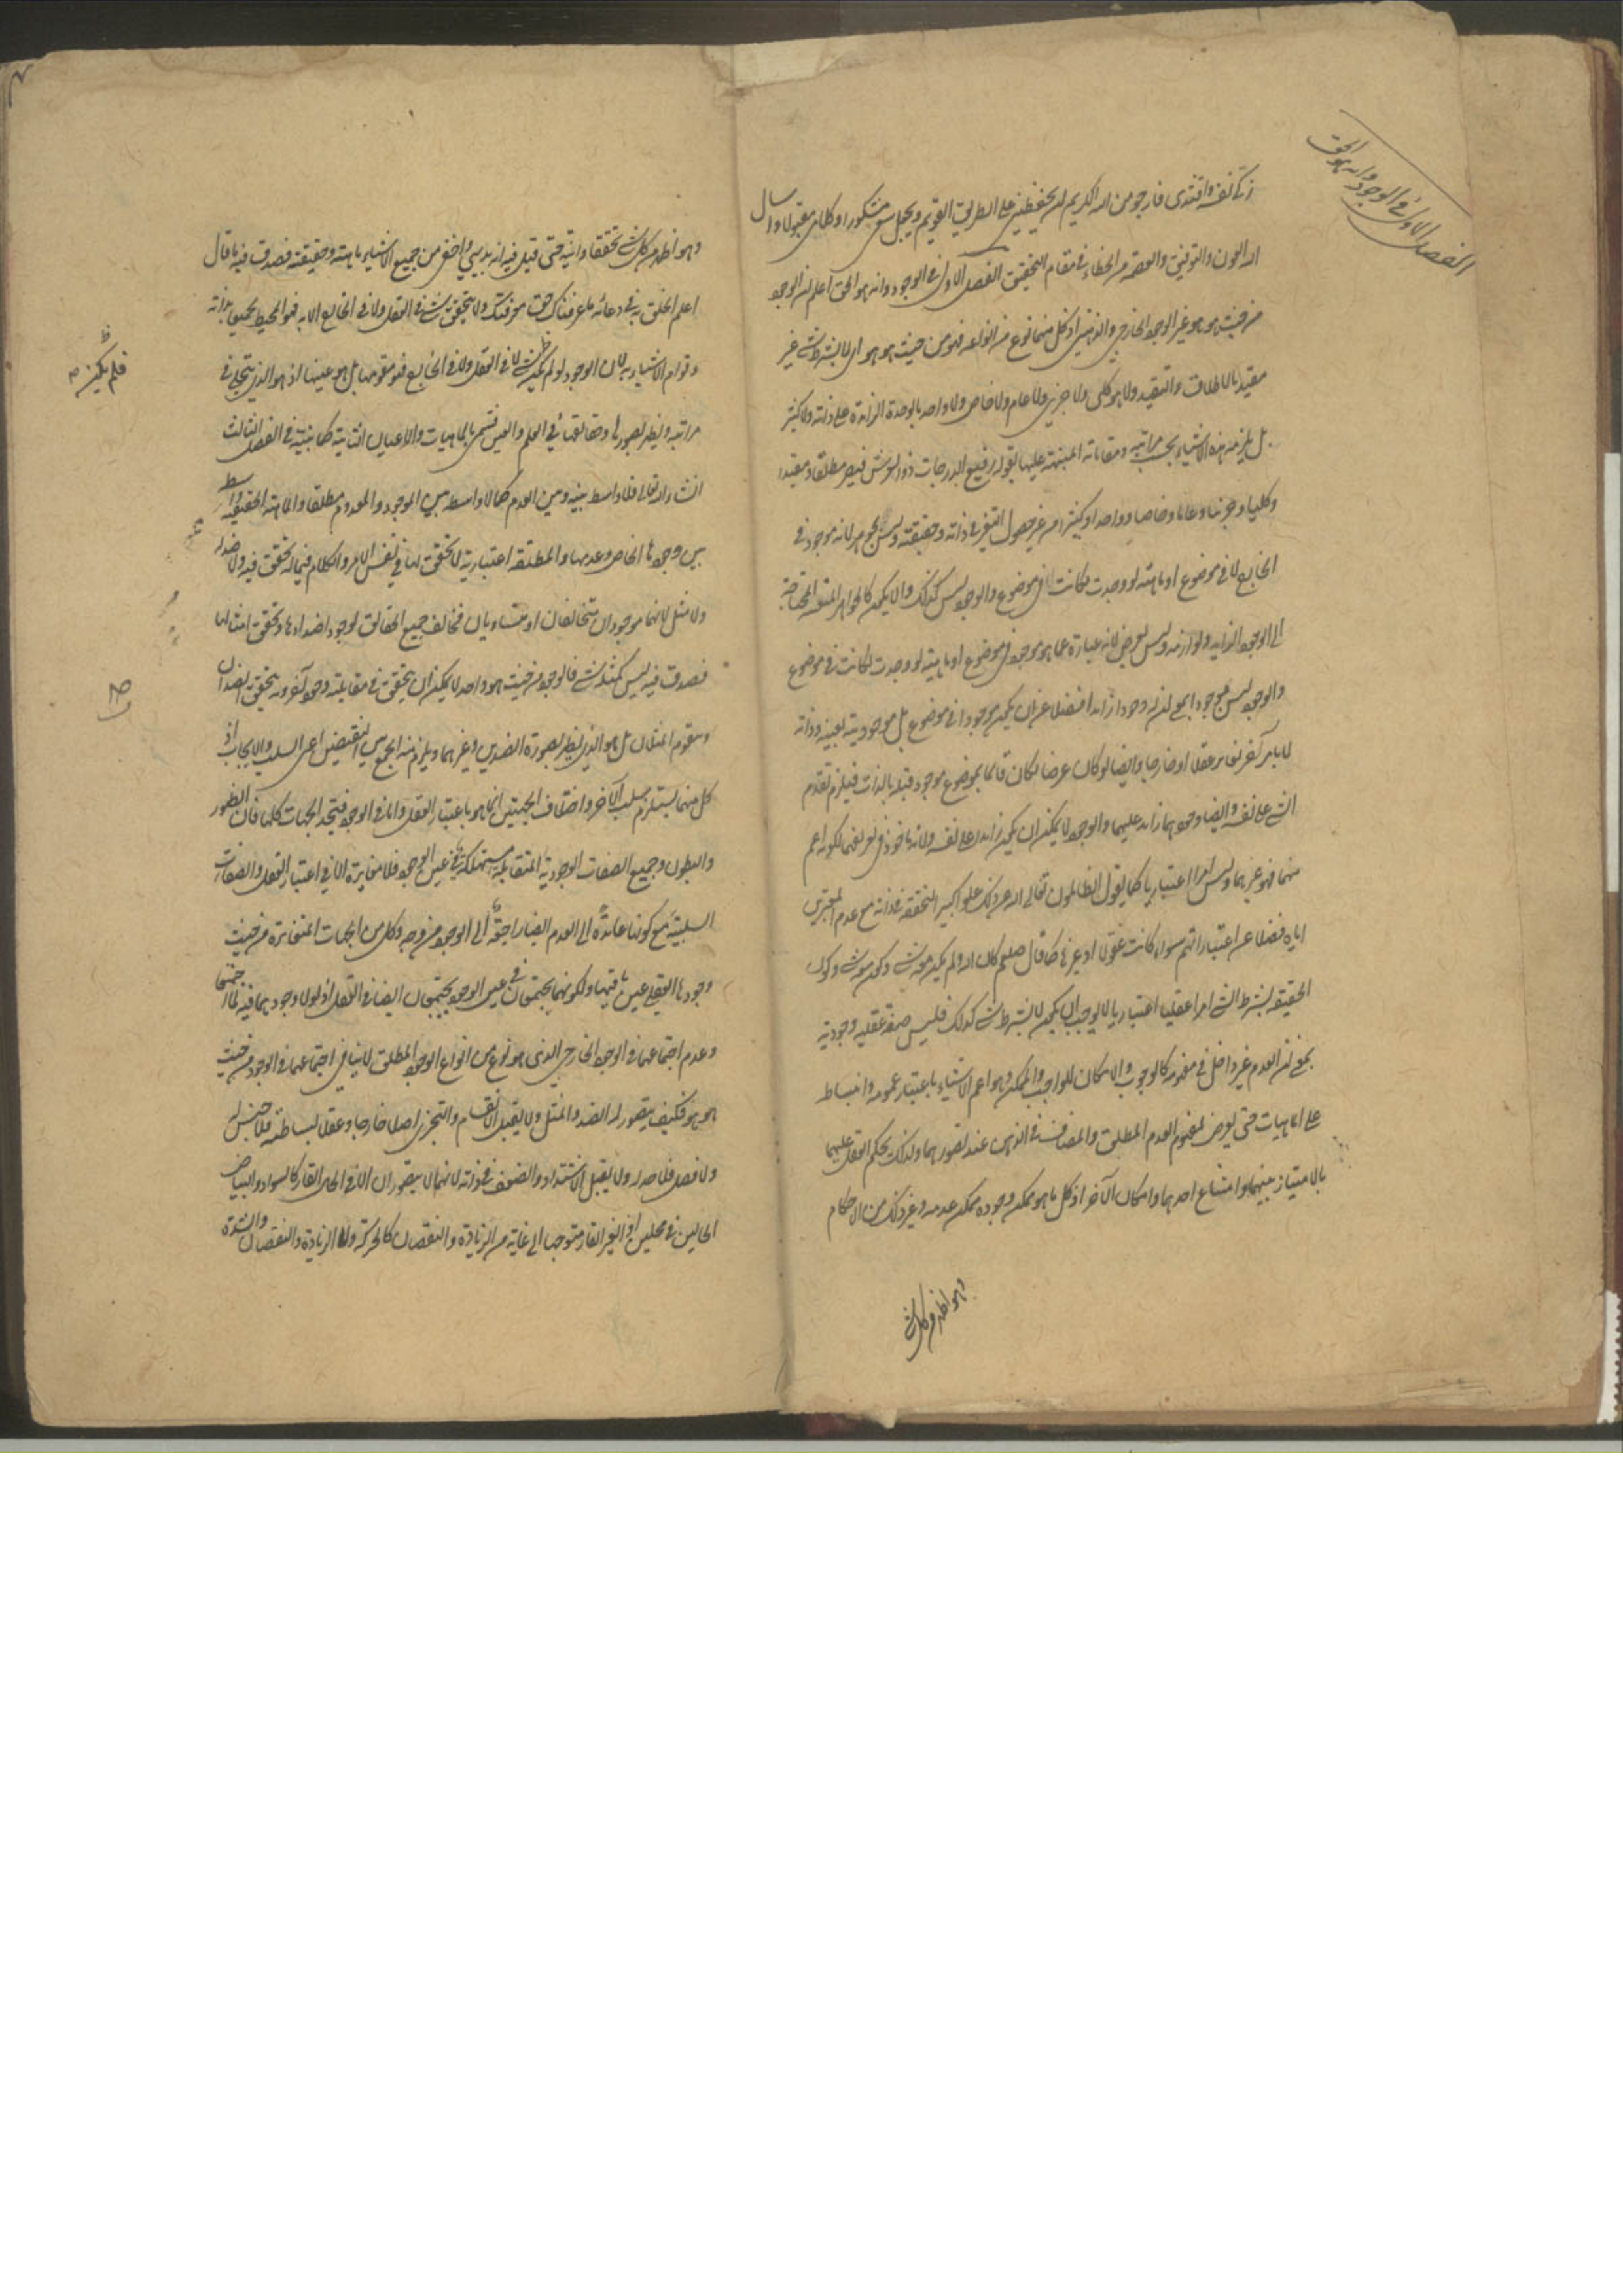 الفصل الاول في الوجود وانه هو الحق
زكى نفسه واقتدى فارجو من الله الكريم ان يحفظني على الطريق القويم ويجعل سعي مشكورا وكلامي مقبولا واسال
الله العون والتوفيق والعصمة من الخطاء في مقام التحقيق الفصل الاول في الوجود وانه هو الحق اعلم ان الوجود
من حيث هو هو غير الوجود الخارجي والذهني اذ كل منهما نوع من انواعه فهو من حيث هو هو اى لا بشرط شئ غير
مقيد بالاطلاق والتقييد ولا هو كلي ولا جزئي ولا عام ولا خاص ولا واحد بالوحدة الزائدة على ذاته ولا كثير
بل يلزمه هذه الاشياء بحسب مراتبه ومقاماته المنبهة عليها بقوله رفيع الدرجات ذو العرش فيصير مطلقا ومقيدا
وكليا وجزئيا وعاما وخاصا وواحدا وكثيرا من غير حصول التغير في ذاته وحقيقته وليس بجوهر لانه موجود في
الخارج لا في موضوع او ماهية لو وجدت لكانت لا في موضوع والوجود ليس كذلك والا يكون كالجواهر المتعينة المحتاجة
الى الوجود الزايد ولوازمه وليس بعرض لانه عبارة عما هو موجود في موضوع او ماهية لو وجدت لكانت في موضوع
والوجود ليس موجودا بمعنى ان له وجودا زائدا فضلا عن ان يكون موجودا في موضوع بل موجوديته بعينه وذاته
لا بامر آخر يغايره عقلا او خارجا وايضا لو كان عرضا لكان قائما بموضوع موجود قبله بالذات فيلزم تقدم
الشئ على نفسه وايضا وجودهما زايد عليهما والوجود لا يمكن ان يكون زايدا على نفسه ولانه ماخوذ في تعريفهما لكونه اعم
منهما فهو غيرهما وليس امرا اعتباريا كما يقول الظالمون تعالى الله عن ذلك علوا كبيرا لتحققه في ذاته مع عدم المعتبرين
اياه فضلا عن اعتباراتهم سواء كانت عقولا او غيرها كما قال صلعم كان الله ولم يكن معه شئ وكون
الحقيقة بشرط الشئ امرا عقليا اعتباريا لا يوجب ان يكون لا بشرط شئ كذلك فليس صفة عقلية وجودية
بمعنى ان العدم غير داخل في مفهومه كالوجوب والامكان للواجب والممكن وهو اعم الاشياء باعتبار عمومه وانبساطه
على الماهيات حتى يعرض لمفهوم العدم المطلق والمضاف في الذهن عند تصورهما ولذلك يحكم العقل عليهما
بالامتياز بينهما وامتناع احدهما وامكان الآخر اذ كل ما هو ممكن وجوده ممكن عدمه وغير ذلك من الاحكام
وهو اظهر من كل شئ
وهو اظهر من كل شئ تحققا وانية حتى قيل فيه انه بديهي واخفى من جميع الاشياء ماهية وحقيقة فصدق فيه ما قال
اعلم الخلق به في دعائه ما عرفناك حق معرفتك ولا يتحقق شئ في العقل ولا في الخارج الا به فهو المحيط بجميعها بذاته
وقوام الاشياء به لان الوجود لو لم يكن لم يكن شئ لا في العقل ولا في الخارج فهو مقومها بل هو عينها اذ هو الذي يتجلى في
مراتبه ويظهر بصورها وحقايقها في العلم والعين فتسمى بالماهيات والاعيان الثابتة كما نبينه في الفصل الثالث
انشاء الله تعالى فلا واسطة بينه وبين العدم كما لا واسطة بين الموجود والمعدوم مطلقا والماهية الحقيقية واسطة
بين وجودها الخاص وعدمها والمطلقة اعتبارية لا تحقق لها في نفس الامر والكلام فيما له تحقق فيه ولا ضد له
ولا مثل لانهما موجودان متخالفان او متساويان فخالف جميع الحقائق لوجود اضدادها وتحقق امثالها
فصدق فيه ليس كمثله شئ فالوجود من حيث هو واحد لا يمكن ان يتحقق في مقابلته وجود آخر وبه يتحقق الضدان
ويتقوم المثلان بل هو الذي يظهر بصورة الضدين وغيرهما ويلزم منه الجمع بين النقيضين اعني السلب والايجاب اذ
كل منهما يستلزم سلب الآخر واختلاف الجهتين انما هو باعتبار العقل واما في الوجود فيتحد الجهات كلها فان الظهور
والبطون وجميع الصفات الوجودية المتقابلة مستهلكة في عين الوجود فلا مغايرة الا في اعتبار العقل والصفات
السلبية مع كونها عائدة الى العدم ايضا راجعة الى الوجود من وجه وكل من الجهات المتغايرة من حيث
وجودها العقلي عين باقيها ولكونهما يجتمعان في عين الوجود يجتمعان ايضا في العقل اذ لولا وجودهما فيه لما اجتمعا
وعدم اجتماعهما في الوجود الخارجي الذي هو نوع من انواع الوجود المطلق لا ينافي اجتماعهما في الوجود من حيث
هو هو فكيف يتصور له الضد والمثل ولا يقبل الانقسام والتجزي اصلا خارجا وعقلا لبساطته فلا جنس له
ولا فصل فلا حد له ولا يقبل الاشتداد والضعف في ذاته لانهما لا يتصوران الا في الحال القار كالسواد والبياض
الحالين في محلين او الغير القار متوجها الى غاية من الزيادة والنقصان كالحركة والزيادة والنقصان والشدة
فلم يكن